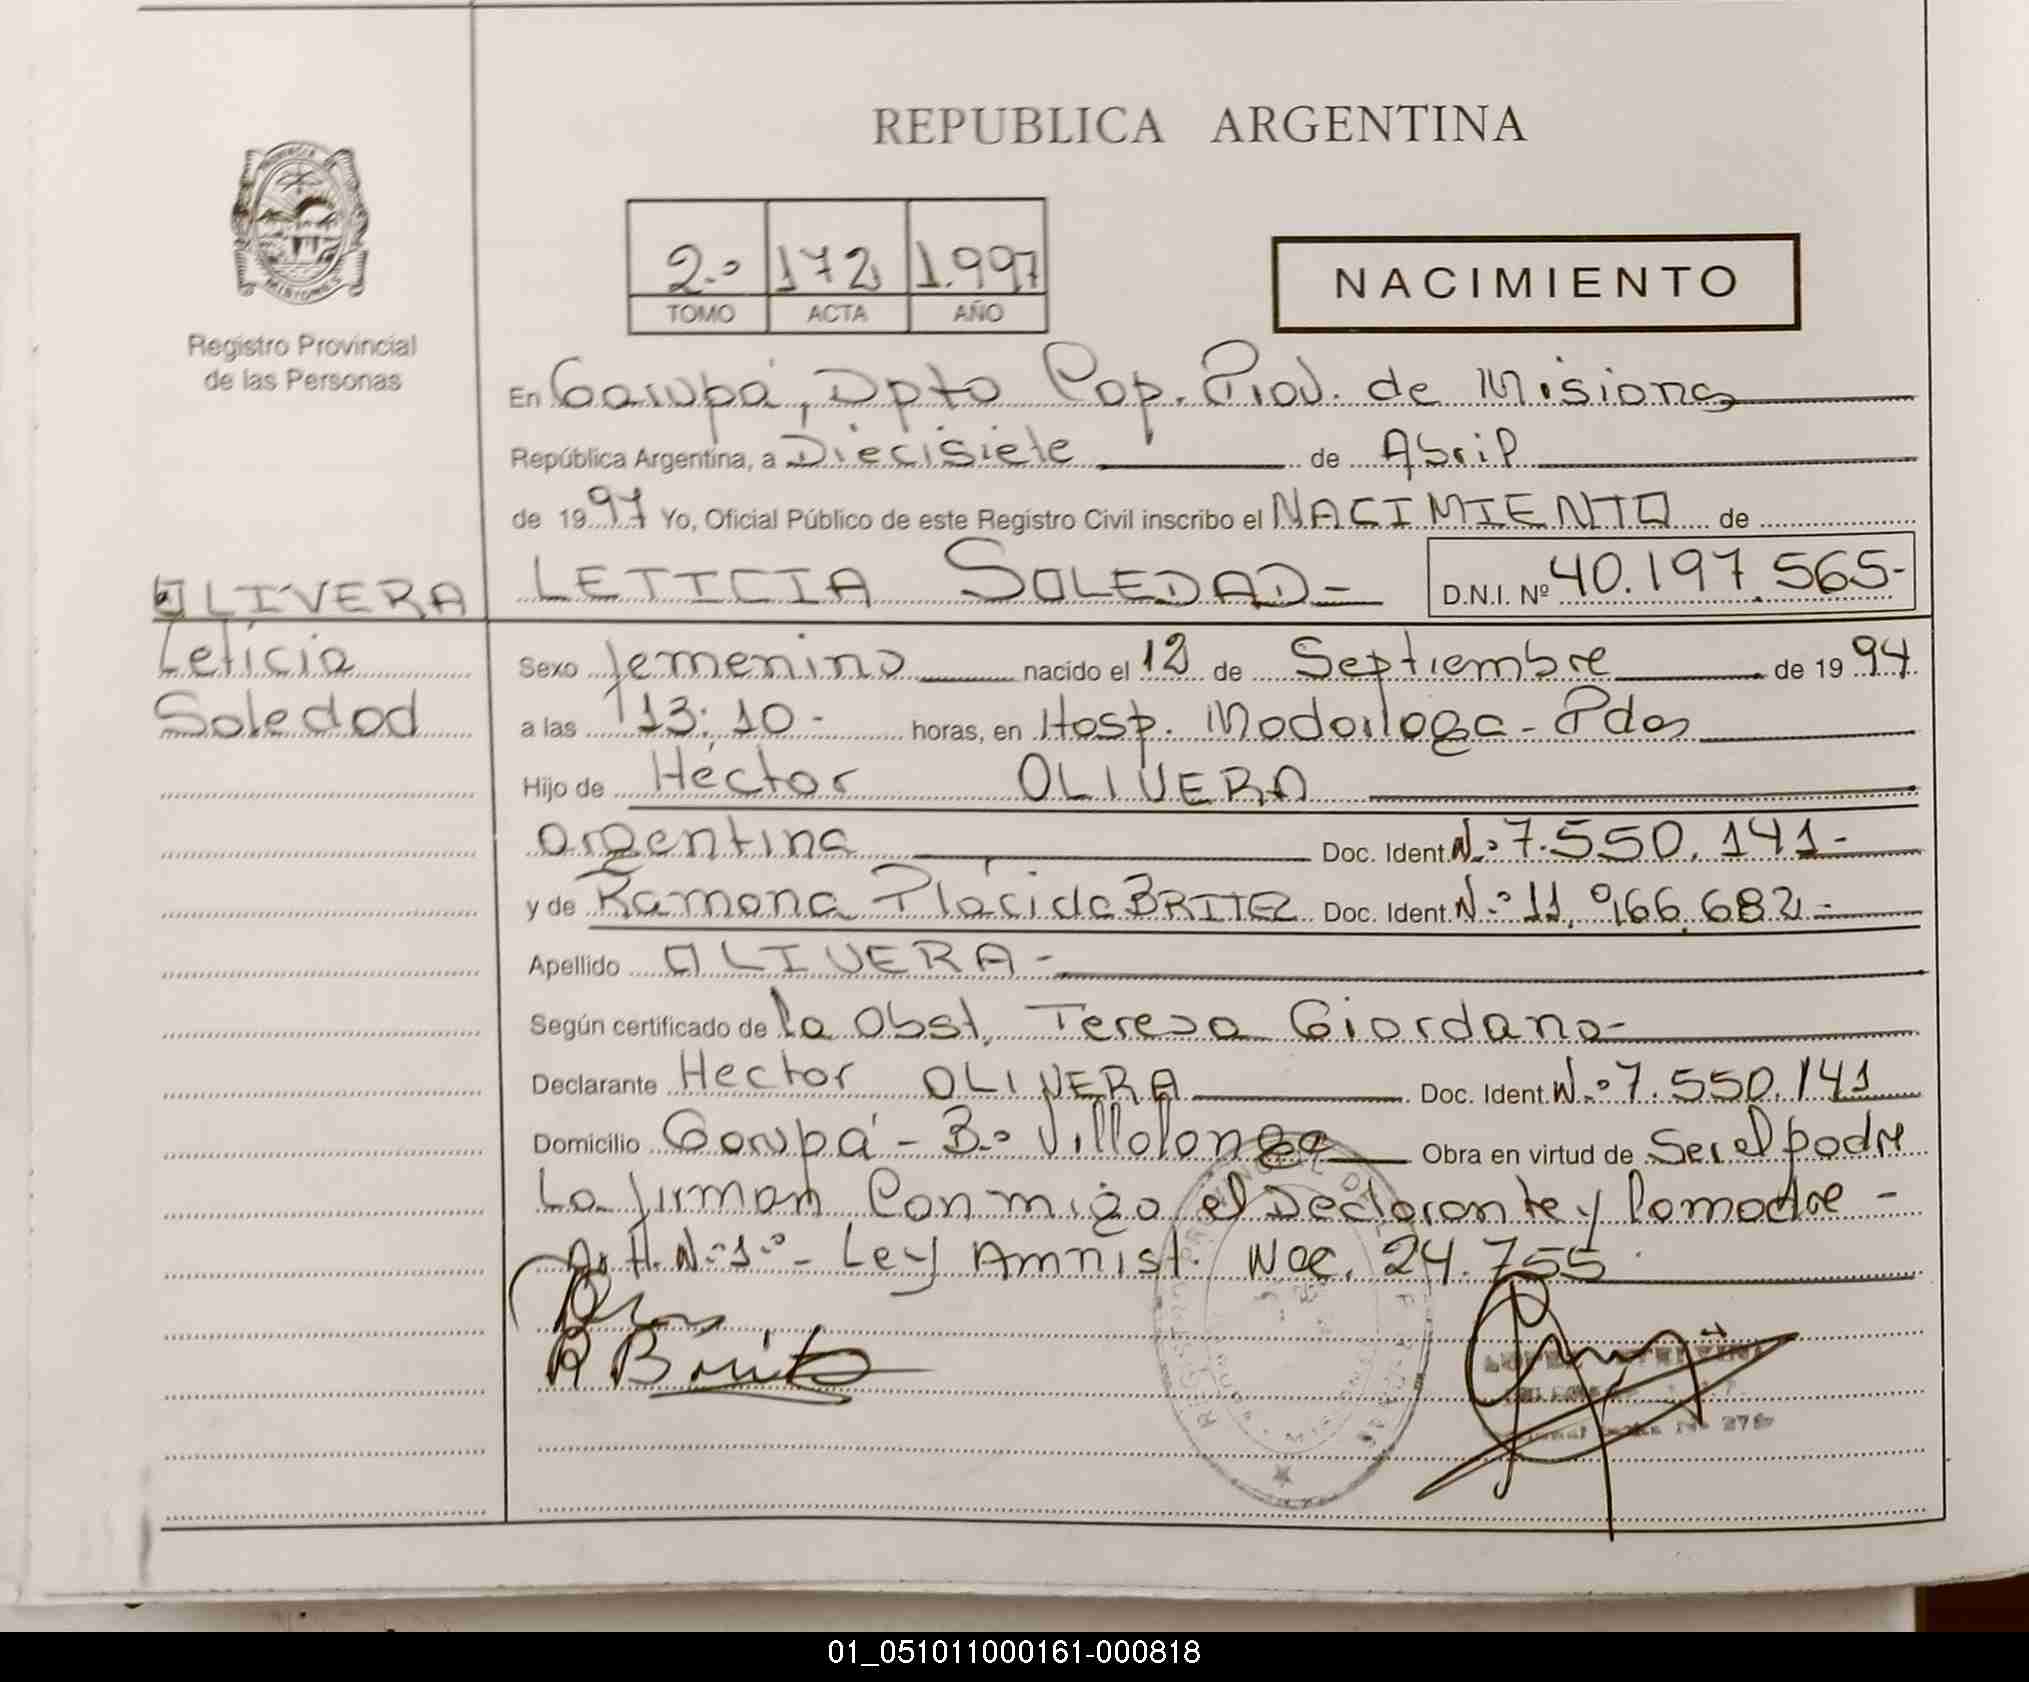 REPUBLICA ARGENTINA
PROVINCIA DE
MISIONES
Registro Provincial
de las Personas
2.º 172 1.997
TOMO ACTA AÑO
NACIMIENTO
En Garupá, Dpto Cap. Prov. de Misiones
República Argentina, a Diecisiete de Abril
de 1997 Yo, Oficial Público de este Registro Civil inscribo el NACIMIENTO de
LETICIA SOLEDAD- D.N.I. Nº 40.197.565-
OLIVERA
Leticia
Soledad
Sexo femenino nacido el 12 de Septiembre de 1994
a las 13:10- horas, en Hosp. Madariaga - Pdas
Hijo de Héctor OLIVERA
argentina Doc. Ident. N.º 7.550.141-
y de Ramona Plácida BRITEZ Doc. Ident. N.º 11.966.682-
Apellido OLIVERA-
Según certificado de la Obst. Teresa Giordano-
Declarante Hector OLIVERA Doc. Ident. N.º 7.550.141
Domicilio Garupá - B.º Villalonga Obra en virtud de Ser el padre
La firman Conmigo el Declarante y la madre -
N.º 1.º - Ley Amnist. Nac. 24.755
R Britez
01_051011000161-000818